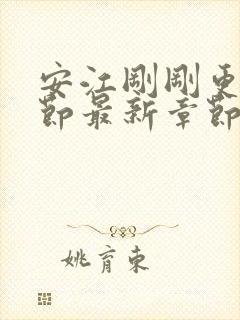 安江刚刚更
节最新章节
姚育东